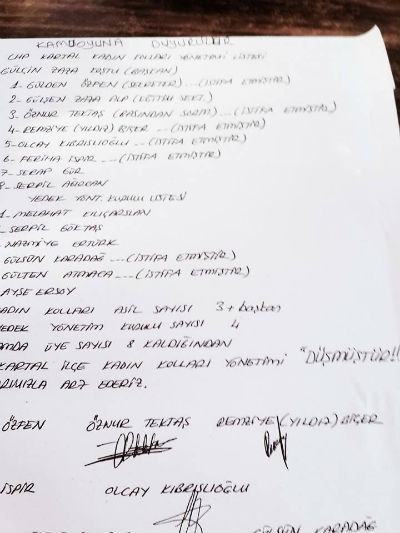 KAMUOYUNA DUYURULUR
CHP KARTAL KADIN KOLLARI YÖNETİMİ LİSTESİ
GÜLÇİN ZAZA TOSTU (BAŞKAN)
1- GÜLDEN ÖZFEN (SEKRETER)...(İSTİFA ETMİŞTİR)
2- GÜLŞEN ZAZA ALP (EĞİTİM SEKT.)
3. ÖZNUR TEKTAŞ (BASINDAN SORM)...(İSTİFA ETMİŞTİR)
4- REMZİYE (YILDIZ) BİÇER ...(İSTİFA ETMİŞTİR)
5- OLCAY KIBRISLIOĞLU ...(İSTİFA ETMİŞTİR)
6- FERİHA İSPİR ...(İSTİFA ETMİŞTİR)
7- SERAP GÜR
8- SERPİL
YEDEK YÖNT. KURULU LİSTESİ
1- MELAHAT KILIÇARSLAN
- SERPİL GÖKTAŞ
- NAZMİYE ERTÜRK
GÜLSÜN KARADAĞ ...(İSTİFA ETMİŞTİR)
GÜLTEN ATMACA ...(İSTİFA ETMİŞTİR)
AYŞE ERSOY
ADIN KOLLARI ASİL SAYISI 3 + başkan
EDEK YÖNETİM KURULU SAYISI 4
AMDA ÜYE SAYISI 8 KALDIĞINDAN
KARTAL İLÇE KADIN KOLLARI YÖNETİMİ "DÜŞMÜŞTÜR!!
RIMIZLA ARZ EDERİZ.
ÖZFEN ÖZNUR TEKTAŞ REMZİYE (YILDIZ) BİÇER
İSPİR OLCAY KIBRISLIOĞLU
GÜLSÜN KARADAĞ